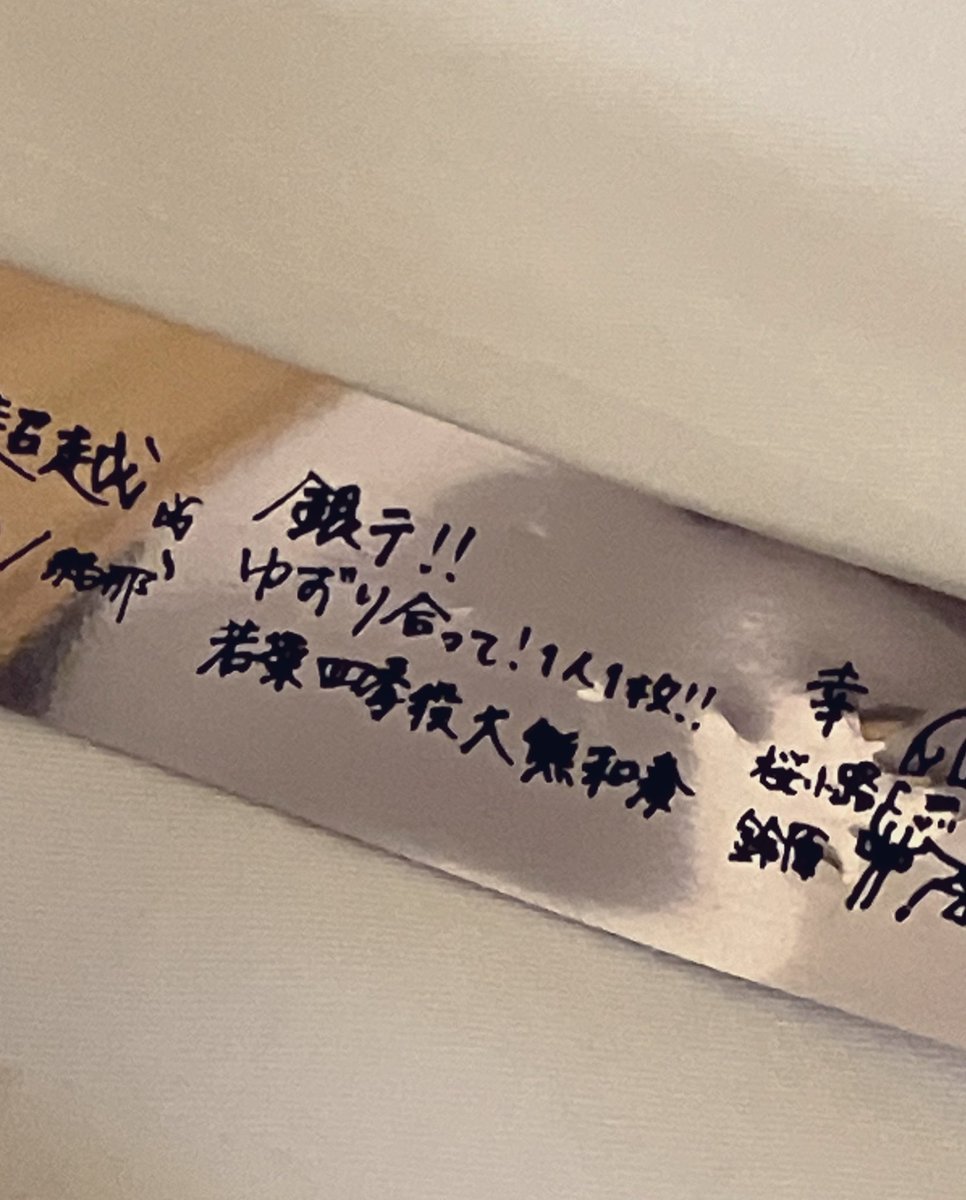 超越
銀テ!!
ゆずり合って!1人1枚!!
若葉四季役大熊和奏
幸
桜小路
鈴原